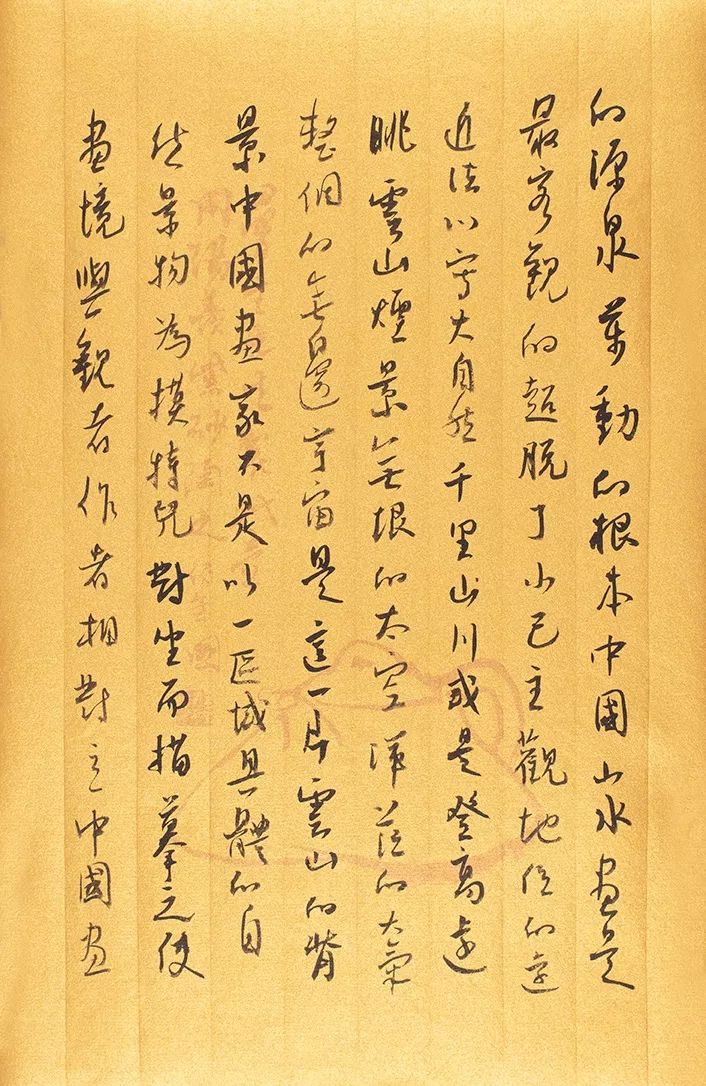 的源泉萬動的根本中國山水畫是
最客觀的超脫了小己主觀地位的遠
近法以寫大自然千里山川或是登高遠
眺雲山煙景無垠的太空渾茫的大氣
整個的無邊宇宙是這一片雲山的背
景中國畫家不是以一區域具體的自
然景物為模特兒對坐而描摹之使
畫境與觀者作者相對立中國畫